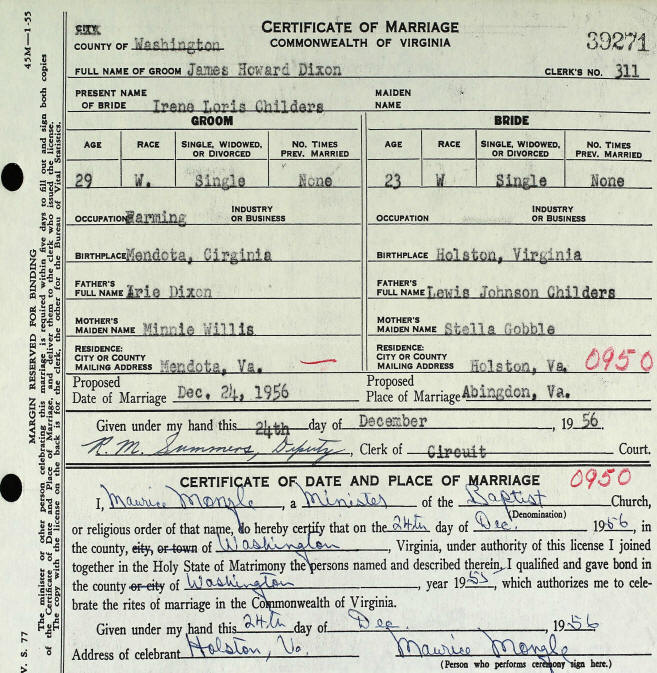 CITY
CERTIFICATE OF MARRIAGE
COUNTY OF Washington
COMMONWEALTH OF VIRGINIA
39271
FULL NAME OF GROOM James Howard Dixon CLERK'S NO. 311
PRESENT NAME OF BRIDE Irene Loris Childers MAIDEN NAME
GROOM BRIDE
AGE RACE SINGLE, WIDOWED, OR DIVORCED NO. TIMES PREV. MARRIED AGE RACE SINGLE, WIDOWED, OR DIVORCED NO. TIMES PREV. MARRIED
29 W. Single None 23 W Single None
OCCUPATION Farming INDUSTRY OR BUSINESS OCCUPATION INDUSTRY OR BUSINESS
BIRTHPLACE Mendota, Cirginia BIRTHPLACE Holston, Virginia
FATHER'S FULL NAME Arie Dixon FATHER'S FULL NAME Lewis Johnson Childers
MOTHER'S MAIDEN NAME Minnie Willis MOTHER'S MAIDEN NAME Stella Gobble
RESIDENCE: CITY OR COUNTY MAILING ADDRESS Mendota, Va. RESIDENCE: CITY OR COUNTY MAILING ADDRESS Holston, Va. 0950
Proposed Date of Marriage Dec. 24, 1956 Proposed Place of Marriage Abingdon, Va.
Given under my hand this 24th day of December, 1956
R. M. Summers, Deputy, Clerk of Circuit Court.
CERTIFICATE OF DATE AND PLACE OF MARRIAGE 0950
I, Maurice Mongle, a Minister of the Baptist Church,
(Denomination)
or religious order of that name, do hereby certify that on the 24th day of Dec. 1956, in
the county, city, or town of Washington, Virginia, under authority of this license I joined
together in the Holy State of Matrimony the persons named and described therein. I qualified and gave bond in
the county or city of Washington, year 1955, which authorizes me to cele-
brate the rites of marriage in the Commonwealth of Virginia.
Given under my hand this 24th day of Dec., 1956
Address of celebrant Holston, Va. Maurice Mongle
(Person who performs ceremony sign here.)
45M—1-55
MARGIN RESERVED FOR BINDING
The minister or other person celebrating this marriage is required within five days to fill out and sign both copies
of the Certificate of Date and Place of Marriage, and deliver them to the clerk who issued the license.
The copy with the license on the back is for the clerk, the other for the Bureau of Vital Statistics.
V. S. 77